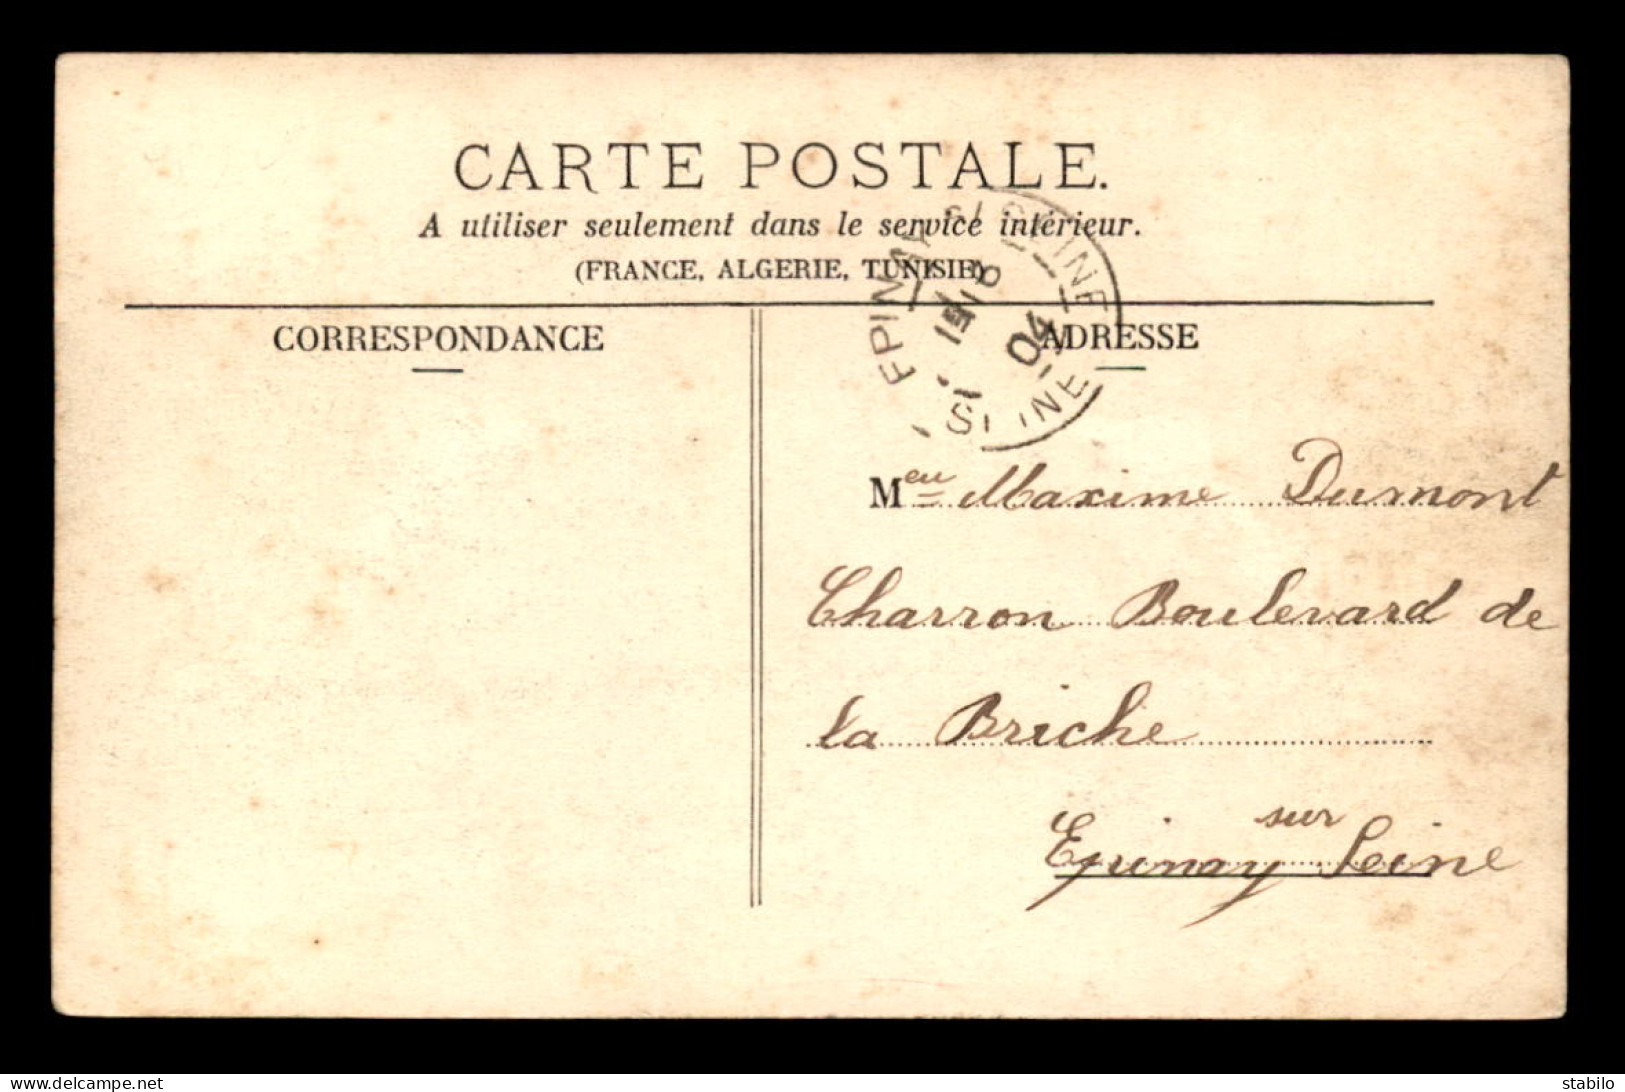 CARTE POSTALE.
A utiliser seulement dans le service intérieur.
(FRANCE, ALGERIE, TUNISIE)
CORRESPONDANCE
ADRESSE
EPINAY S/ SEINE
04
SEINE
Meu Maxime Dumont
Charron Boulevard de
la Briche
Epinay sur Seine
www.delcampe.net
stabilo